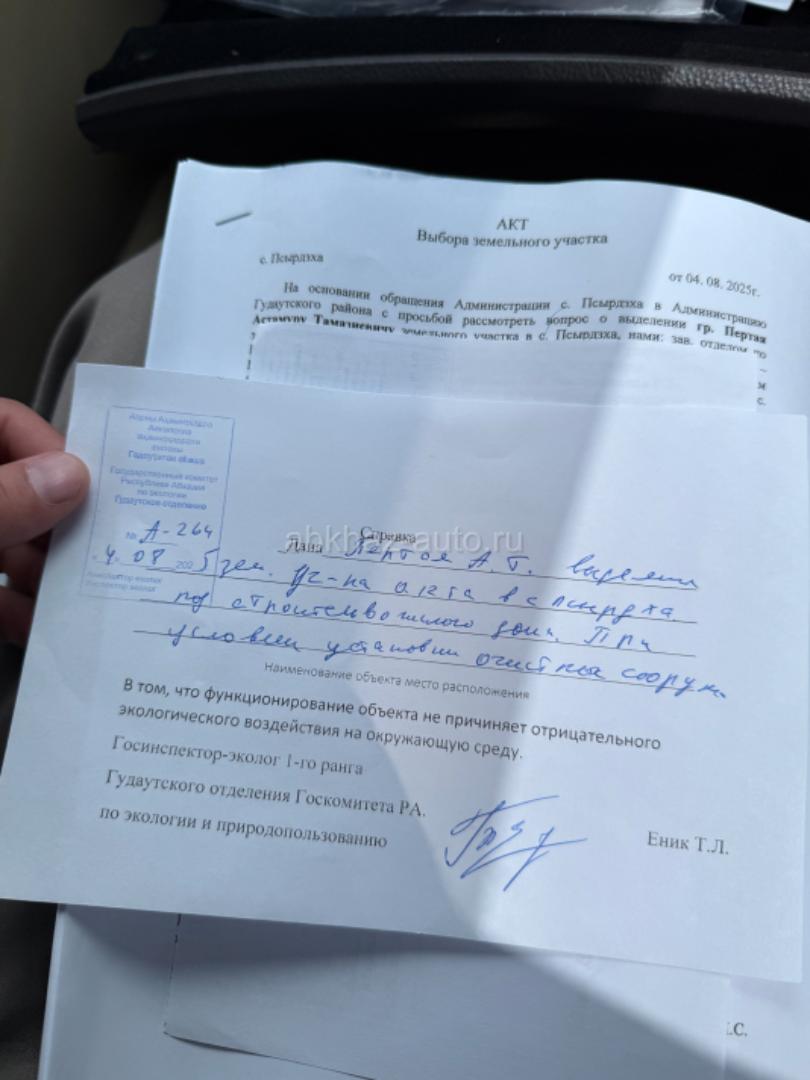 АКТ
Выбора земельного участка
с. Псырдзха
от 04. 08. 2025г.
На основании обращения Администрации с. Псырдзха в Администрацию
Гудаутского района с просьбой рассмотреть вопрос о выделении гр. Пертая
Астамуру Тамазиевичу земельного участка в с. Псырдзха, нами: зав. отделом по
м
с.
Государственный комитет
Республики Абхазия
по экологии
Гудаутское отделение
№ А-264
"4" 08 2025
Инспектор эколог
abkhaz-auto.ru
Справка
Дана Пертая А. Т.
зем. уч-ка
под строительво жилого дома. При
условии установки очистных сооруж.
Наименование объекта место расположения
В том, что функционирование объекта не причиняет отрицательного
экологического воздействия на окружающую среду.
Госинспектор-эколог 1-го ранга
Гудаутского отделения Госкомитета РА.
по экологии и природопользованию
Еник Т.Л.
.С.